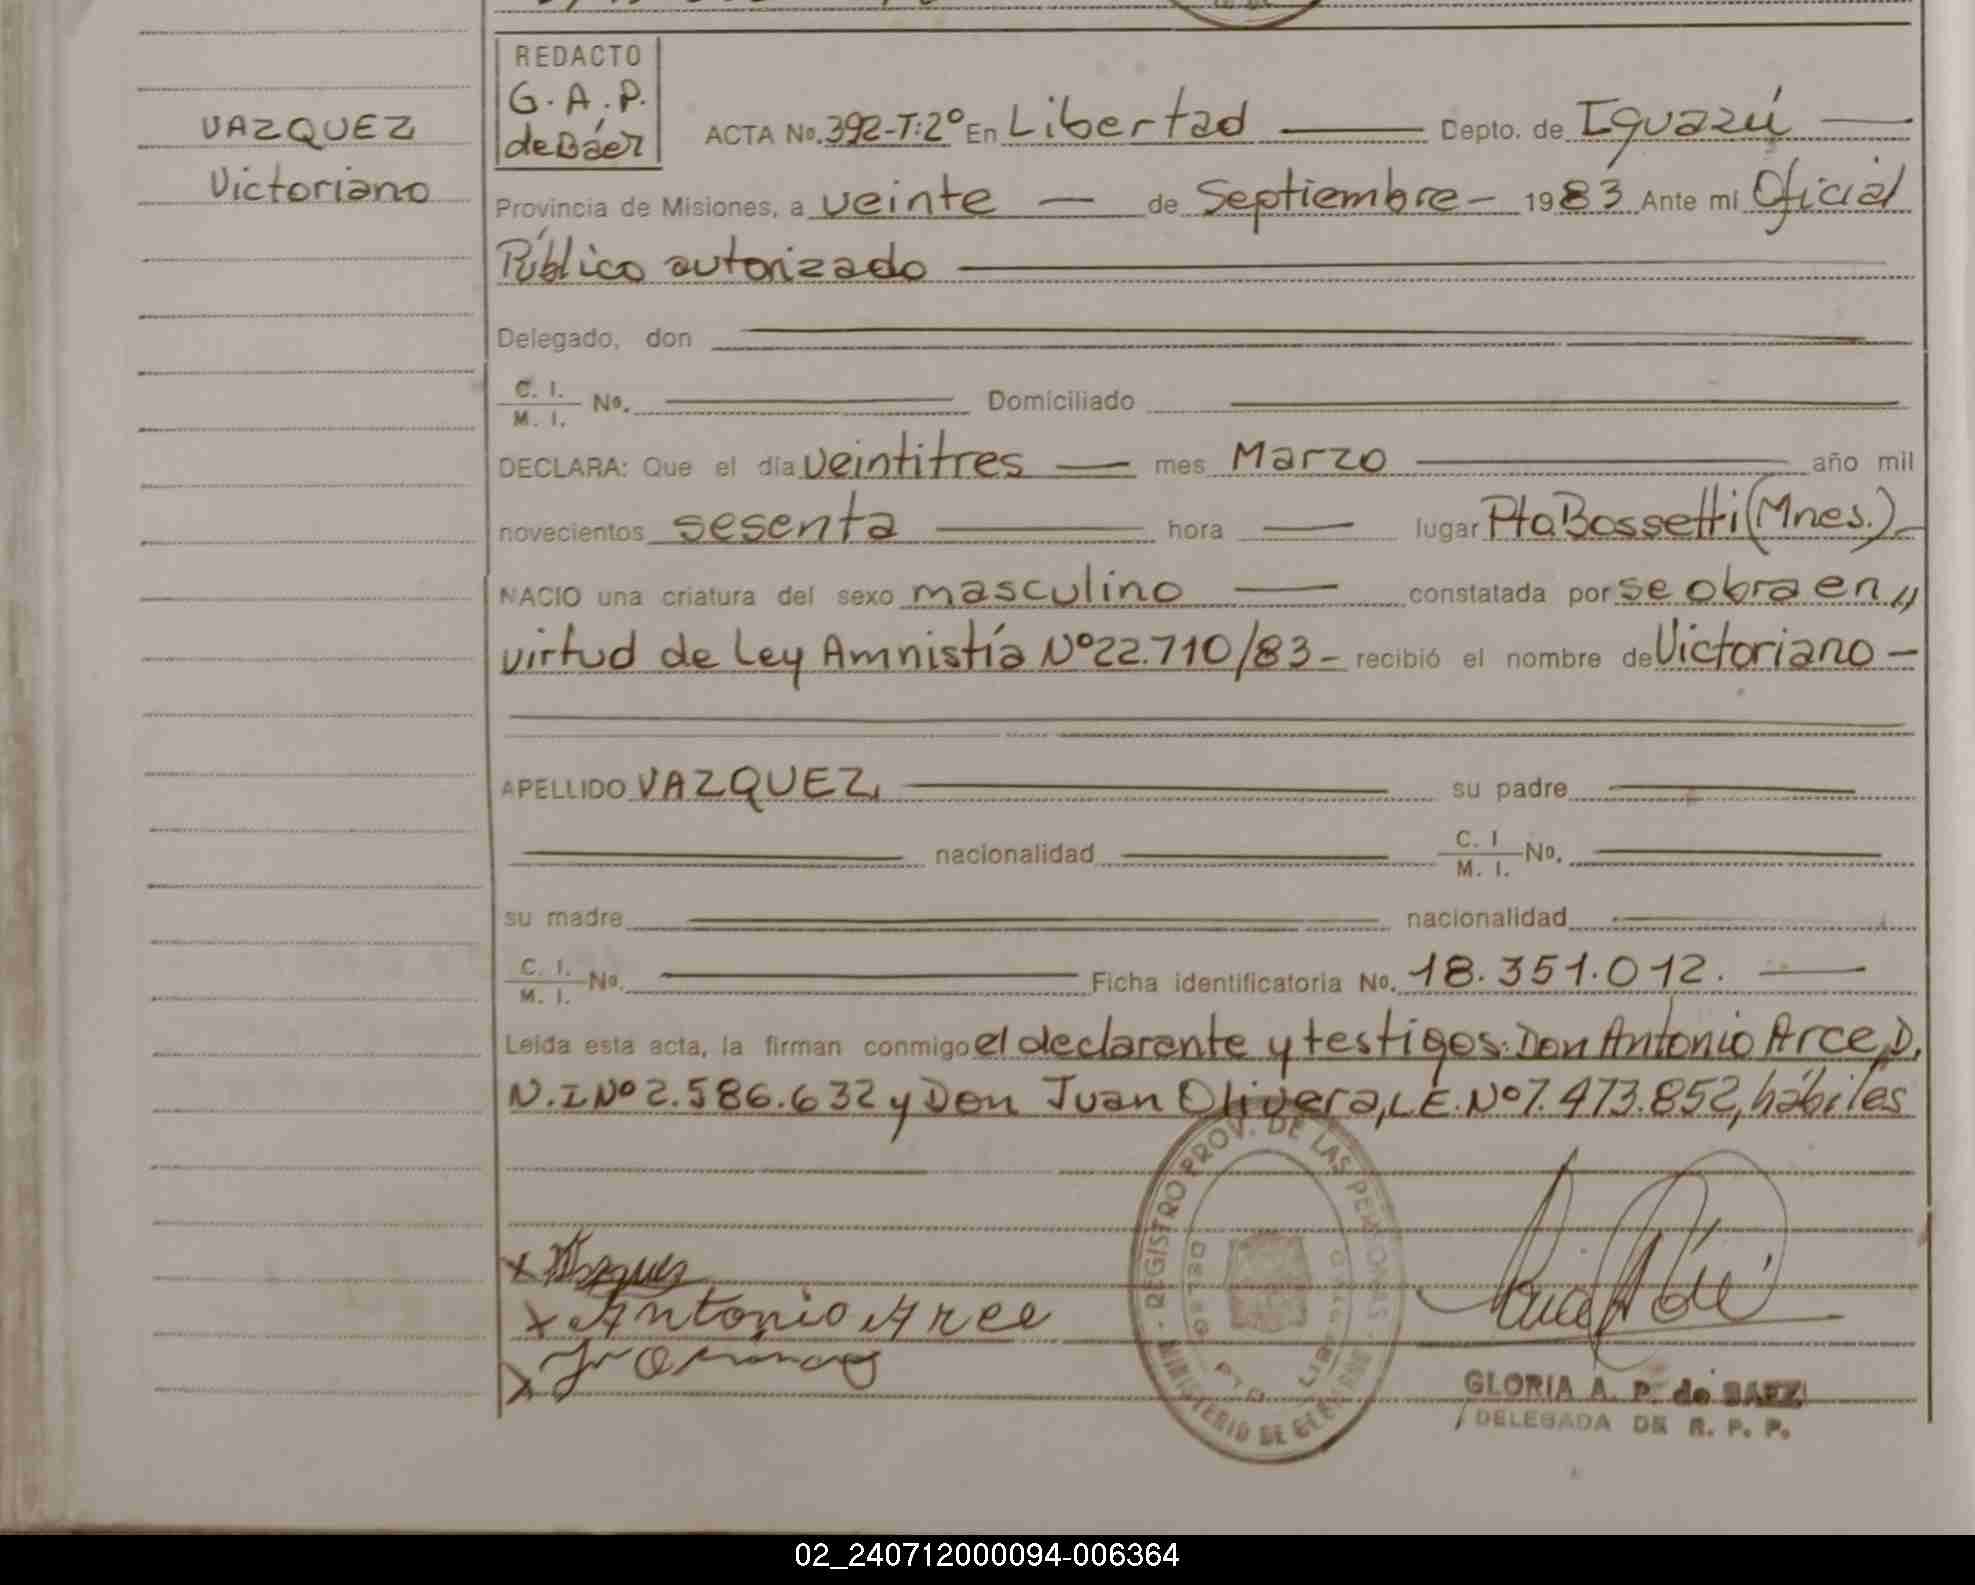 VAZQUEZ
Victoriano
REDACTO
G. A. P.
de Báez
ACTA No. 392-T:2º En Libertad Depto. de Iguazú
Provincia de Misiones, a veinte de Septiembre - 1983 Ante mi Oficial
Público autorizado
Delegado, don
C. I.
M. I. No. Domiciliado
DECLARA: Que el día veintitres mes Marzo año mil
novecientos sesenta hora lugar Pto Bossetti (Mnes.) -
NACIO una criatura del sexo masculino constatada por se obra en //
virtud de Ley Amnistía Nº 22.710/83 - recibió el nombre de Victoriano -
APELLIDO VAZQUEZ, su padre
nacionalidad C. I
M. I. No.
su madre nacionalidad
C. I.
M. I. No. Ficha identificatoria No. 18.351.012.
Leida esta acta, la firman conmigo el declarante y testigos: Don Antonio Arce, D.
N.I Nº 2.586.632 y Don Juan Olivera, L.E. Nº 7.473.852, hábiles
x Antonio Arce
REGISTRO PROV. DE LAS PERSONAS
MINISTERIO DE
PTO
GLORIA A. P. de BAEZ
DELEGADA DE R. P. P.
02_240712000094-006364